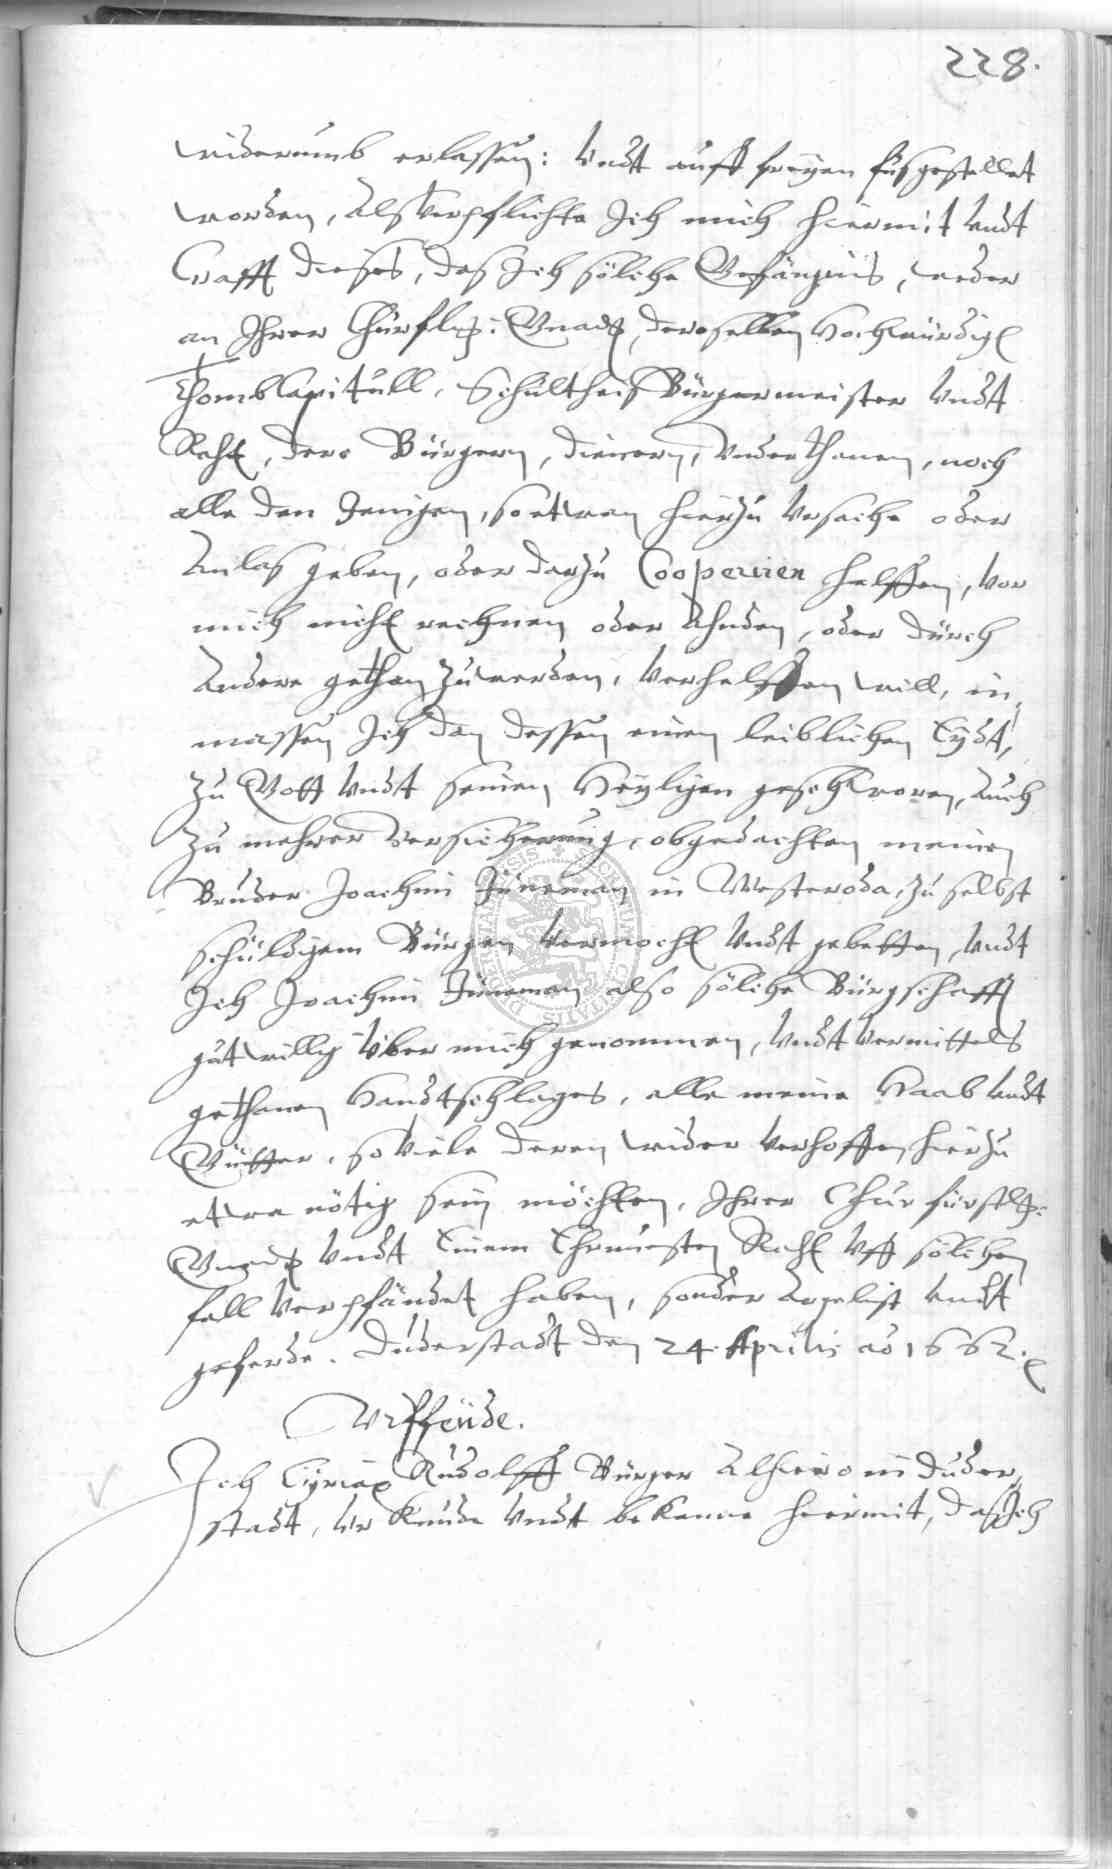 228.
widerumb erlassen: vndt auff freyen fus gestellet
worden, Als verpflichte Ich mich hiermit vndt
Crafft dieses, das Ich solche Gefängnis, weder
an Ihrer Churfl. Gnad, deroselben Hochwürdig
Thombcapitull, Schultheis Bürgermeister vndt
Raht, dero Bürgern, dienern, vnderthanen, noch
alle den Jenigen, so etwan hierzu vrsache oder
Anlas geben, oder darzu Cooperiren helffen, vor
mich nicht rechnen oder Ahnden, oder durch
Andere gethan zu werden, verhelffen will, in,
massen Ich dan dessen einen leiblichen Eydt,
zu Gott vndt seinen Heyligen geschworen, Auch
zu mehrer versicherung, obgedachten meinen
Bruder Joachim Jüneman in Westeroda, zu selbst
schuldigem Bürgen vermocht vndt gebetten, vndt
Ich Joachim Jüneman also solche Bürgschafft
gutwillig vber mich genommen, vndt vermittels
gethanen Handtschlages, alle meine Haab vndt
Gütter, so viele deren wider verhoffen hierzu
etwa nötig sein möchten, Ihrer Churfürstl.
Gnad vndt Einem Ehrnvesten Raht vff solchen
fall verpfändet haben, sonder Argelist vndt
geferde. Duderstadt den 24. Aprilis ao 1662.
Vrffeüde.
Ich Cyriax Rudolff Bürger Alhiero in Duder,
stadt, vrkunde vndt bekenne hiermit, das Ich